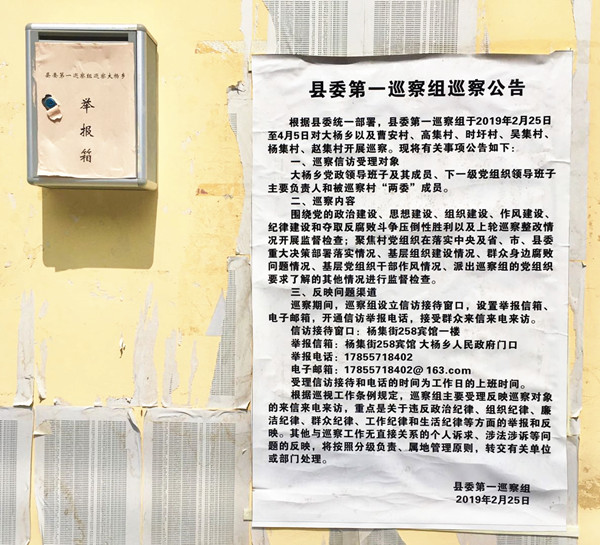 县委第一巡察组巡察大杨乡
举
报
箱
县委第一巡察组巡察公告
根据县委统一部署，县委第一巡察组于2019年2月25日
至4月5日对大杨乡以及曹安村、高集村、时圩村、吴集村、
杨集村、赵集村开展巡察。现将有关事项公告如下：
一、巡察信访受理对象
大杨乡党政领导班子及其成员、下一级党组织领导班子
主要负责人和被巡察村“两委”成员。
二、巡察内容
围绕党的政治建设、思想建设、组织建设、作风建设、
纪律建设和夺取反腐败斗争压倒性胜利以及上轮巡察整改情
况开展监督检查；聚焦村党组织在落实中央及省、市、县委
重大决策部署落实情况、基层组织建设情况、群众身边腐败
问题情况、基层党组织干部作风情况、派出巡察组的党组织
要求了解的其他情况进行监督检查。
三、反映问题渠道
巡察期间，巡察组设立信访接待窗口，设置举报信箱、
电子邮箱，开通信访举报电话，接受群众来信来电来访。
信访接待窗口：杨集街258宾馆一楼
举报信箱：杨集街258宾馆 大杨乡人民政府门口
举报电话：17855718402
电子邮箱：17855718402@163.com
受理信访接待和电话的时间为工作日的上班时间。
根据巡视工作条例规定，巡察组主要受理反映巡察对象
的来信来电来访，重点是关于违反政治纪律、组织纪律、廉
洁纪律、群众纪律、工作纪律和生活纪律等方面的举报和反
映。其他与巡察工作无直接关系的个人诉求、涉法涉诉等问
题的反映，将按照分级负责、属地管理原则，转交有关单位
或部门处理。
县委第一巡察组
2019年2月25日